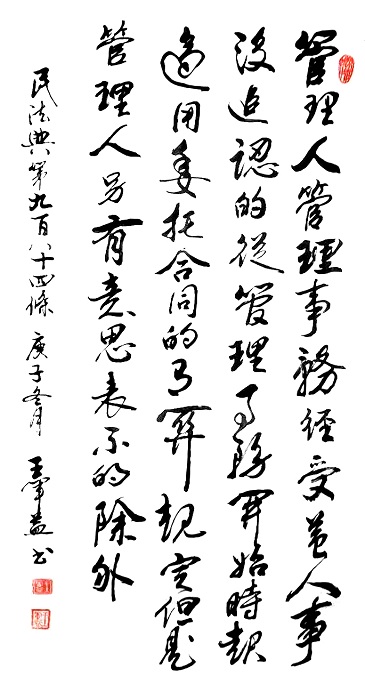 管理人管理事務經受益人事
後追認的從管理事務開始時起
適用委托合同的有關規定但是
管理人另有意思表示的除外
民法典第九百八十四條 庚子冬月 王益書